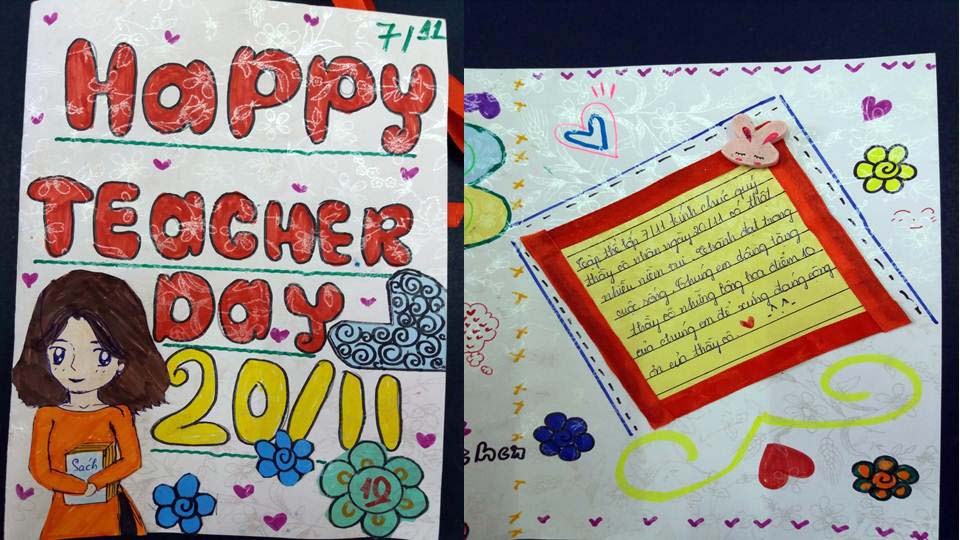 7/11
Happy
TEACHER
Day
20/11
Sách
10
Tập thể lớp 7/11 kính chúc quý
thầy cô nhân ngày 20/11 có thật
nhiều niềm vui. Thành đạt trong
cuộc sống. Chúng em dâng tặng
thầy cô những bông hoa điểm 10
của chúng em để xứng đáng công
ơn của thầy cô ^.^